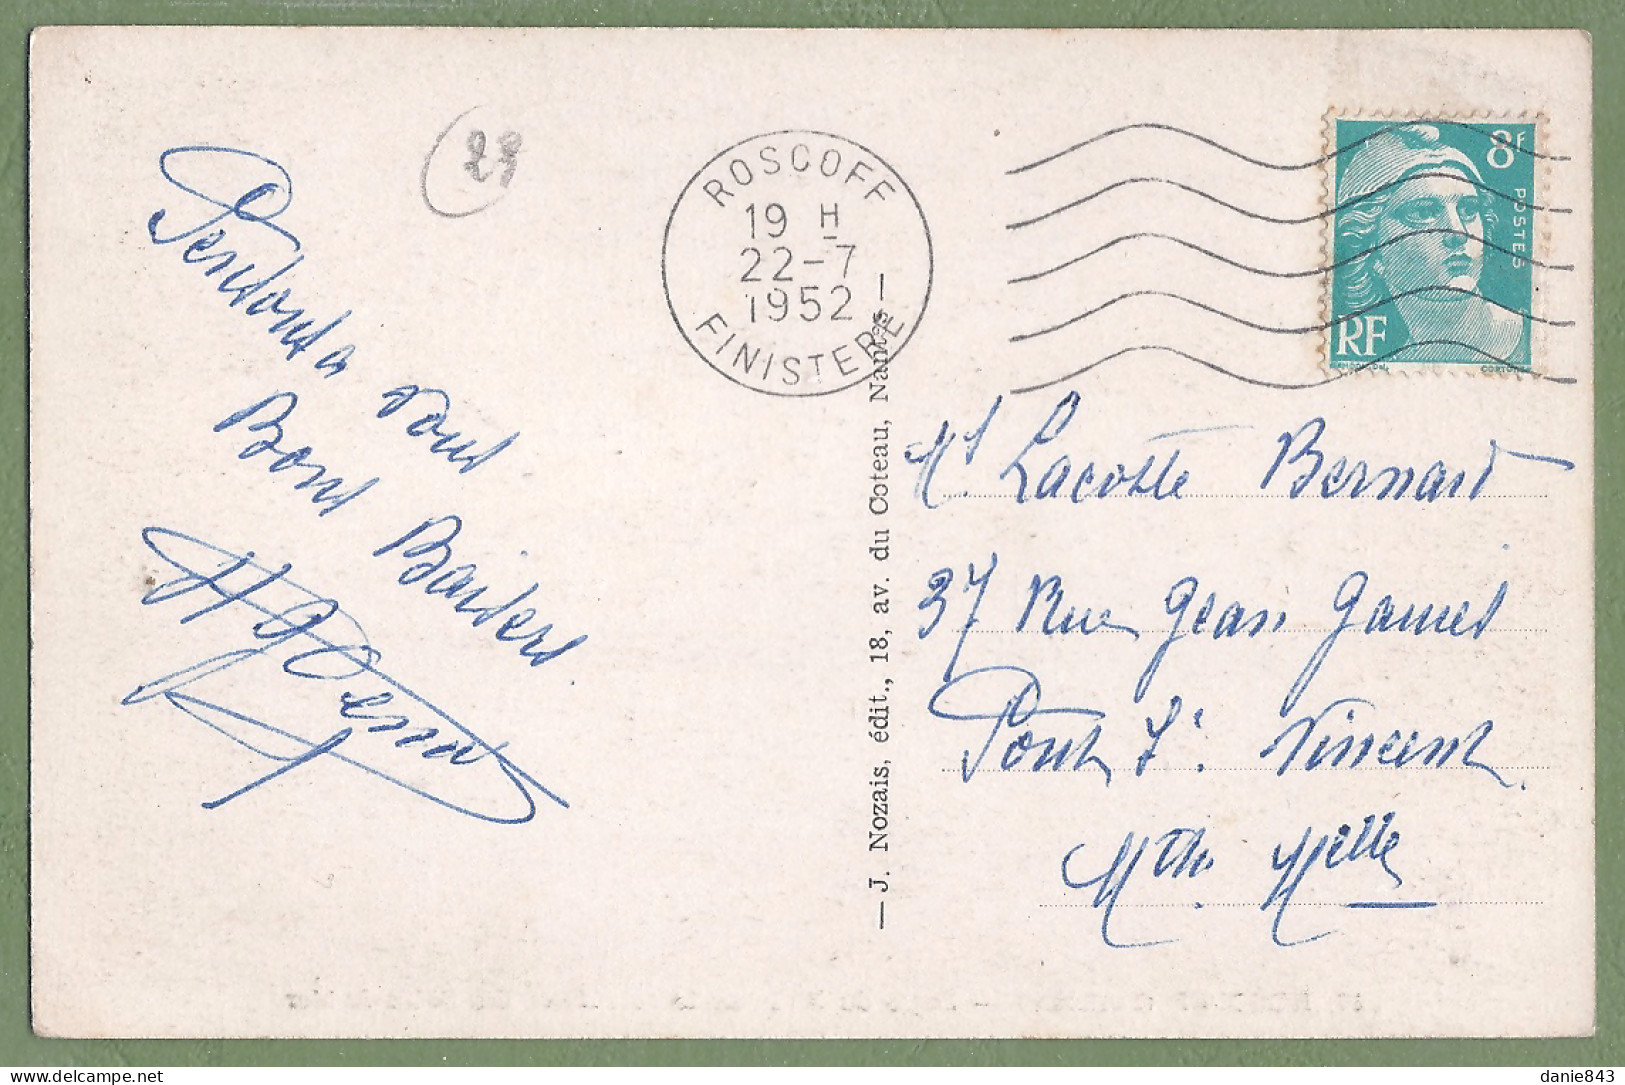 29
ROSCOFF
19 H
22-7
1952
FINISTERE
8F
POSTES
RF
Pensons à vous
Bons Baisers
Mr. Lacotte Bernard
37 Rue Jean Jaurès
Pont St. Vincent
Mthe Melle
— J. Nozais, édit., 18, av. du Coteau, Nantes —
danie843